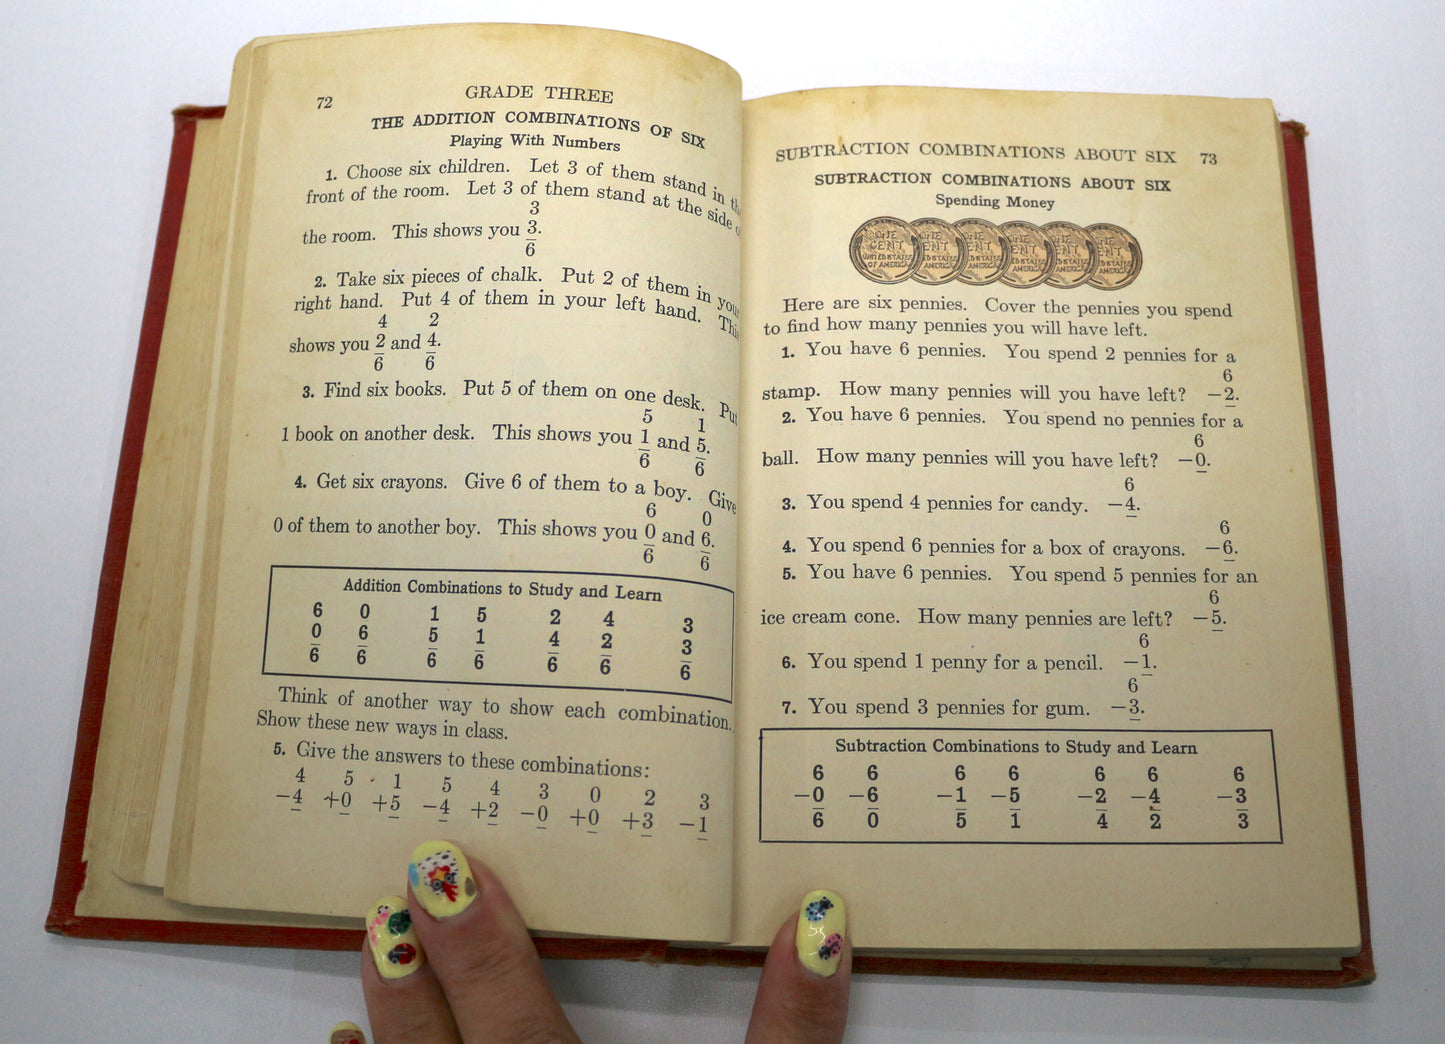 72
GRADE THREE
THE ADDITION COMBINATIONS OF SIX
Playing With Numbers
1. Choose six children. Let 3 of them stand in
front of the room. Let 3 of them stand at the side
3
the room. This shows you 3.
6
2. Take six pieces of chalk. Put 2 of them in
right hand. Put 4 of them in your left hand.
4 2
shows you 2 and 4.
6 6
3. Find six books. Put 5 of them on one desk. Put
5 1
1 book on another desk. This shows you 1 and 5.
6 6
4. Get six crayons. Give 6 of them to a boy. Give
6 0
0 of them to another boy. This shows you 0 and 6.
6 6
Addition Combinations to Study and Learn
6 0 1 5 2 4 3
0 6 5 1 4 2 3
6 6 6 6 6 6 6
Think of another way to show each combination.
Show these new ways in class.
5. Give the answers to these combinations:
4 5 1 5 4 3 0 2 3
−4 +0 +5 −4 +2 −0 +0 +3 −1
SUBTRACTION COMBINATIONS ABOUT SIX 73
SUBTRACTION COMBINATIONS ABOUT SIX
Spending Money
ONE CENT UNITED STATES OF AMERICA
Here are six pennies. Cover the pennies you spend
to find how many pennies you will have left.
1. You have 6 pennies. You spend 2 pennies for a
6
stamp. How many pennies will you have left? −2.
2. You have 6 pennies. You spend no pennies for a
6
ball. How many pennies will you have left? −0.
6
3. You spend 4 pennies for candy. −4.
6
4. You spend 6 pennies for a box of crayons. −6.
5. You have 6 pennies. You spend 5 pennies for an
6
ice cream cone. How many pennies are left? −5.
6
6. You spend 1 penny for a pencil. −1.
6
7. You spend 3 pennies for gum. −3.
Subtraction Combinations to Study and Learn
6 6 6 6 6 6 6
−0 −6 −1 −5 −2 −4 −3
6 0 5 1 4 2 3